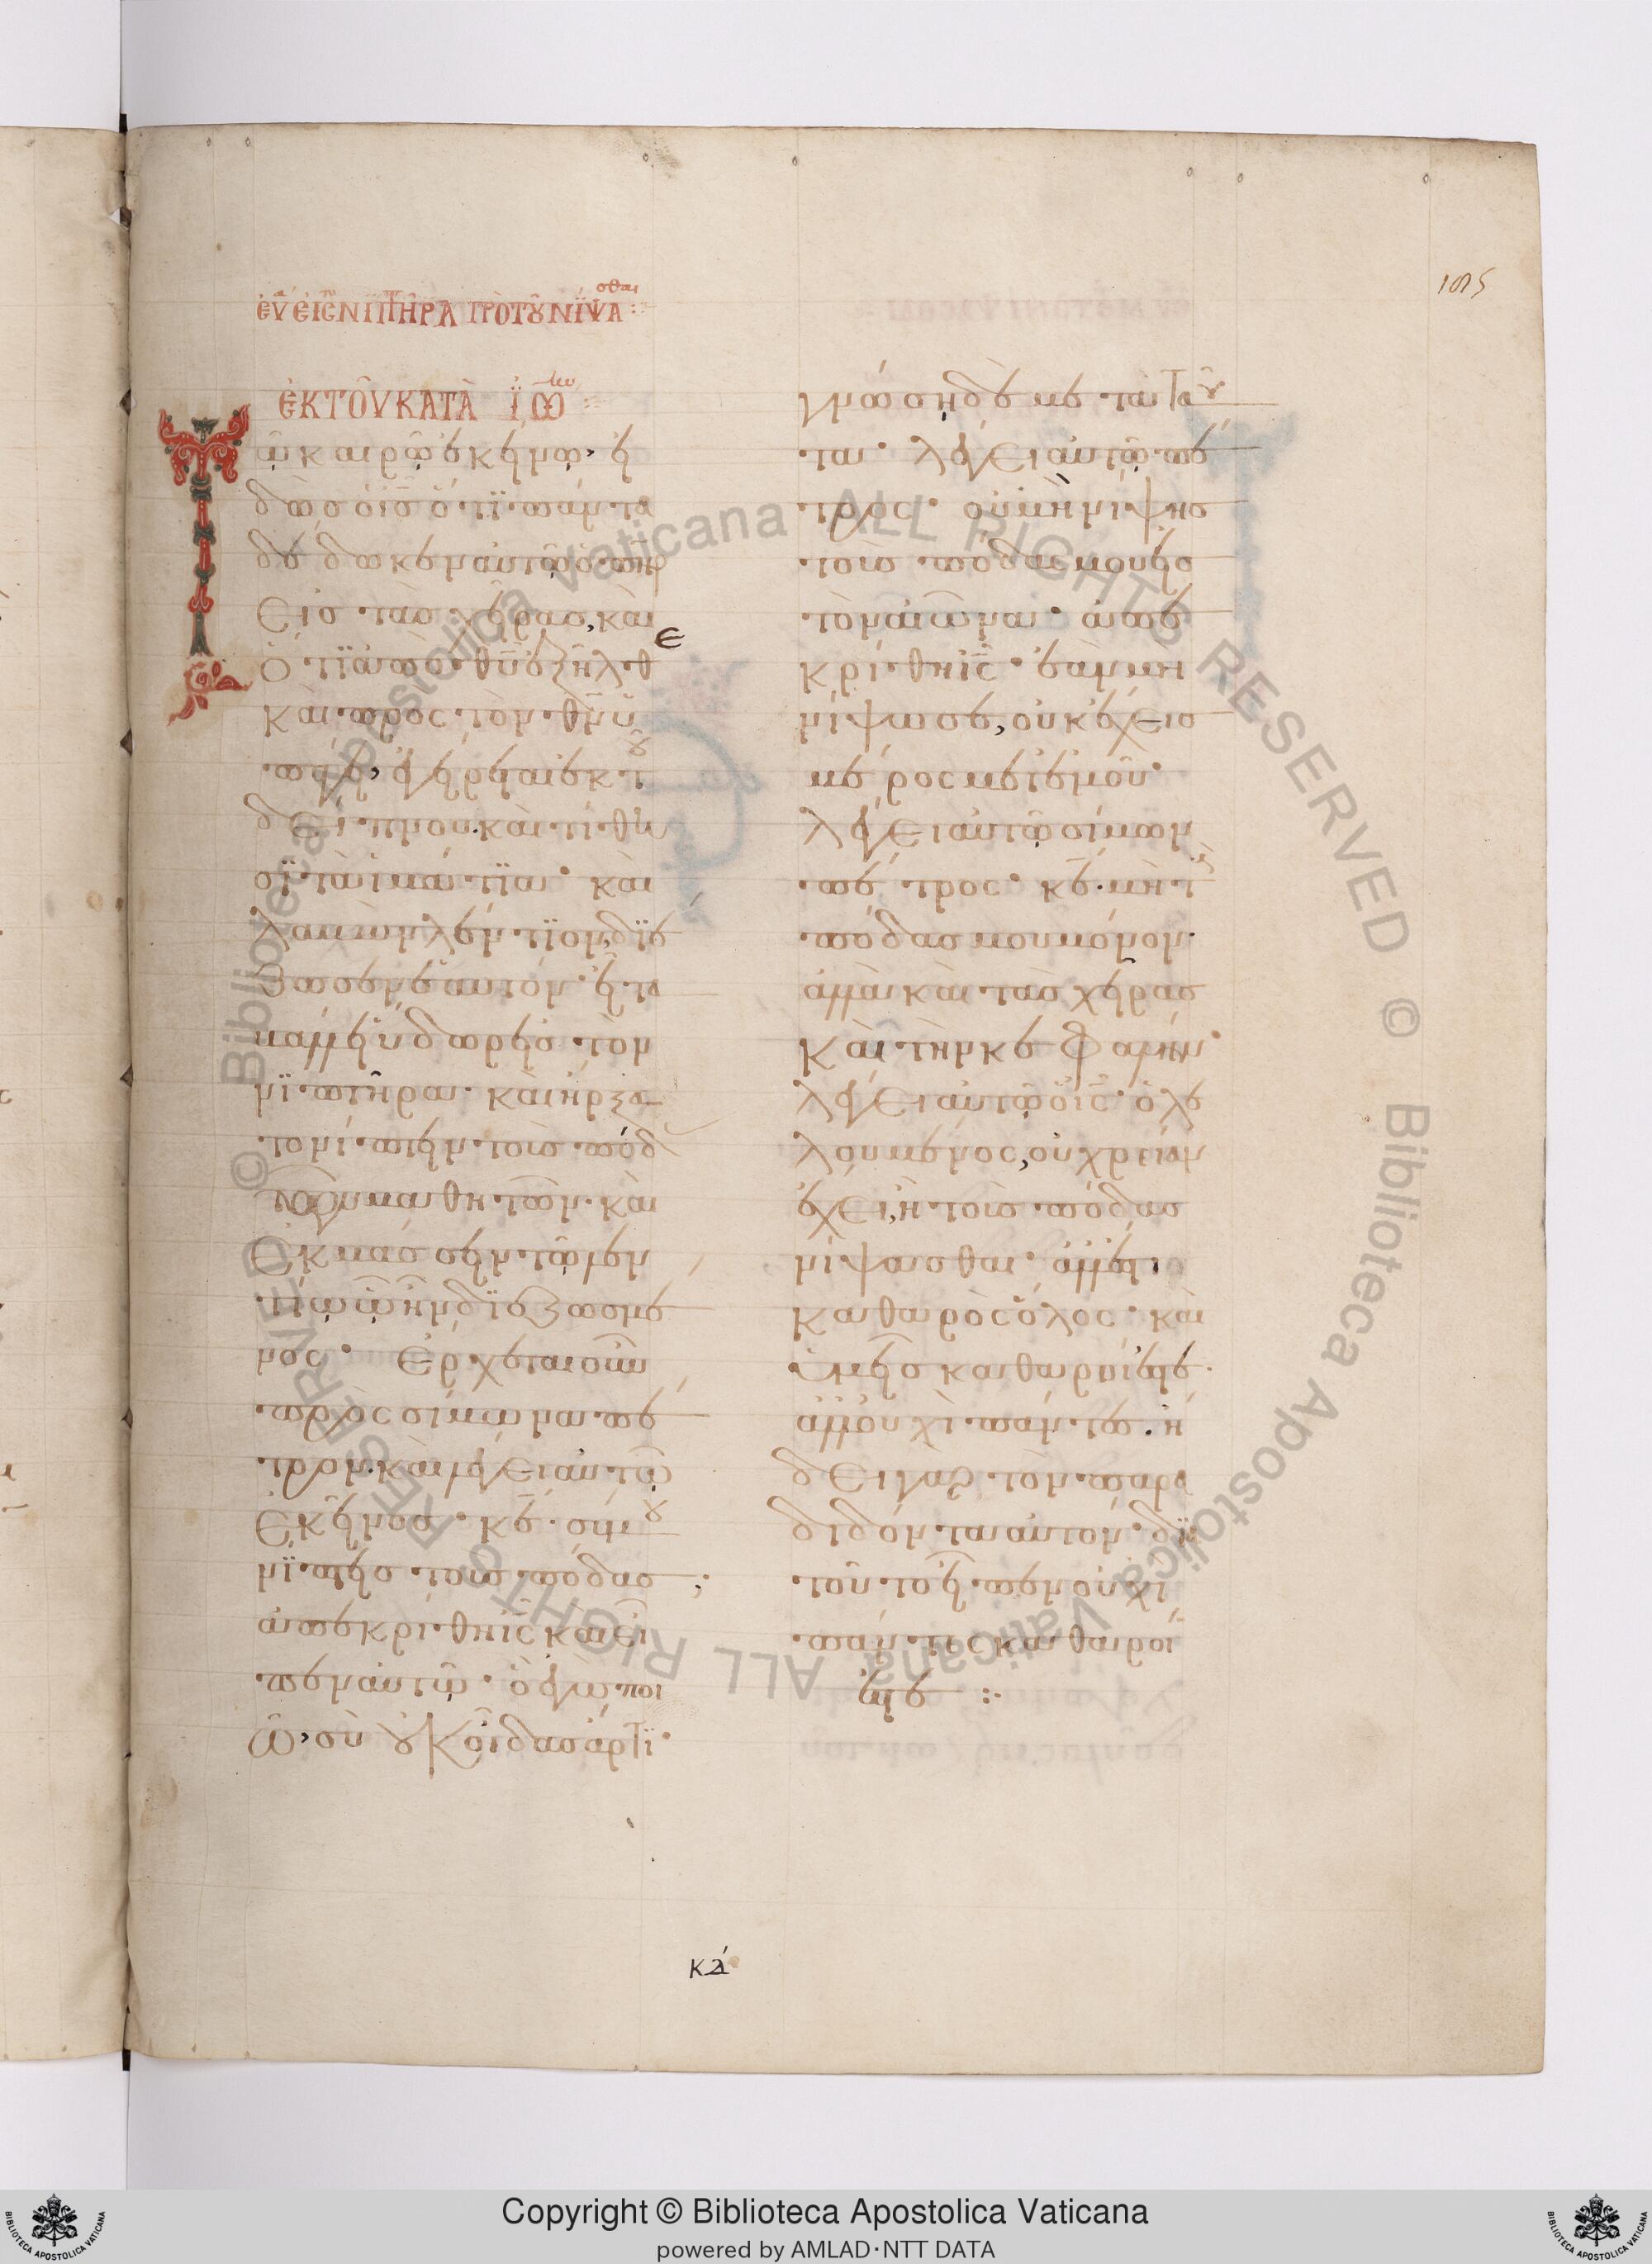 ΕΥ ΕΙΣ ΝΙΠΤΗΡΑ ΠΡΟ ΤΟΥ ΝΙΨΑσθαι
ἐΚ ΤΟῦ ΚΑΤᾺ ἸΩ
Τῶ καιρῶ ἐκείνω, εἰ
δὼς ὁ ις ὅτι πάντα
δέδωκεν αὐτῶ ὁ πηρ
εἰς τὰς χεῖρας, καὶ
ὅτι ἀπὸ θυ ἐξῆλθε
καὶ πρὸς τὸν θν ὑ
πάγει, ἐγείρεται ἐκ τοῦ
δείπνου. καὶ τίθη
σι τὰ ἱμάτια. καὶ
λαβὼν λέντιον, διέ
ζωσεν ἑαυτόν. εἶτα
βάλλει ὕδωρ εἰς τὸν
νιπτῆρα. καὶ ἤρξα
το νίπτειν τοὺς πόδ
τῶν μαθητῶν. καὶ
ἐκμάσσειν τῶ λεν
τίω ὧ ἦν διεζωσμέ
νος. Ἔρχεται οὖν
πρὸς σίμωνα πέ
τρον. καὶ λέγει αὐτῶ
ἐκεῖνος. κε. σύ μου
νίπτεις τοὺς πόδας;
ἀπεκρίθη ις καὶ εἶ
πεν αὐτῶ. ὃ ἐγὼ ποι
ῶ, σὺ οὐκ οἶδας ἄρτι.
γνώση δὲ μετὰ ταῦ
τα. λέγει αὐτῶ πέ
τρος. οὐ μὴ νίψης
τοὺς πόδας μου εἰς
τὸν αἰῶνα. ἀπε
κρίθη ις. ἐὰν μὴ
νίψω σε, οὐκ ἔχεις
μέρος μετ ἐμοῦ.
λέγει αὐτῶ σίμων
πέτρος. κε. μὴ τοὺς
πόδας μου μόνον.
ἀλλὰ καὶ τὰς χεῖρας
καὶ τὴν κεφαλήν.
λέγει αὐτῶ ὁ ις. ὁ λε
λουμένος, οὐ χρείαν
ἔχει, ἢ τοὺς πόδας
νίψασθαι. ἀλλ ἔστι
καθαρὸς ὅλος. καὶ
ὑμεῖς καθαροί ἐστε.
ἀλλ οὐχὶ πάντες. ἤ
δει γὰρ τὸν παρα
διδόντα αὐτόν. διὰ
τοῦτο εἶπεν οὐχὶ
πάντες καθαροί
ἐστε :
κα
Copyright © Biblioteca Apostolica Vaticana
powered by AMLAD·NTT DATA